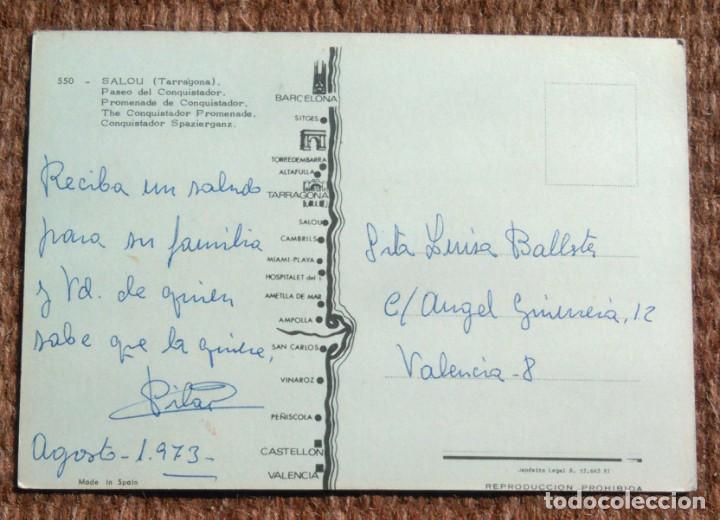 550 - SALOU (Tarragona).
Paseo del Conquistador.
Promenade de Conquistador.
The Conquistador Promenade.
Conquistador Spazierganz.
Reciba un saludo
para su familia
y Vd. de quien
sabe que la quiere,
Pilar
Agosto - 1.973 -
Made in Spain
BARCELONA
SITGES
TORREDEMBARRA
ALTAFULLA
TARRAGONA
SALOU
CAMBRILS
MIAMI-PLAYA
HOSPITALET del I
AMETLLA DE MAR
AMPOLLA
SAN CARLOS
VINAROZ
PEÑISCOLA
CASTELLON
VALENCIA
Luisa Ballster
C/ Angel 12
Valencia - 8
Depósito Legal B.
REPRODUCCION PROHIBIDA
todocoleccion